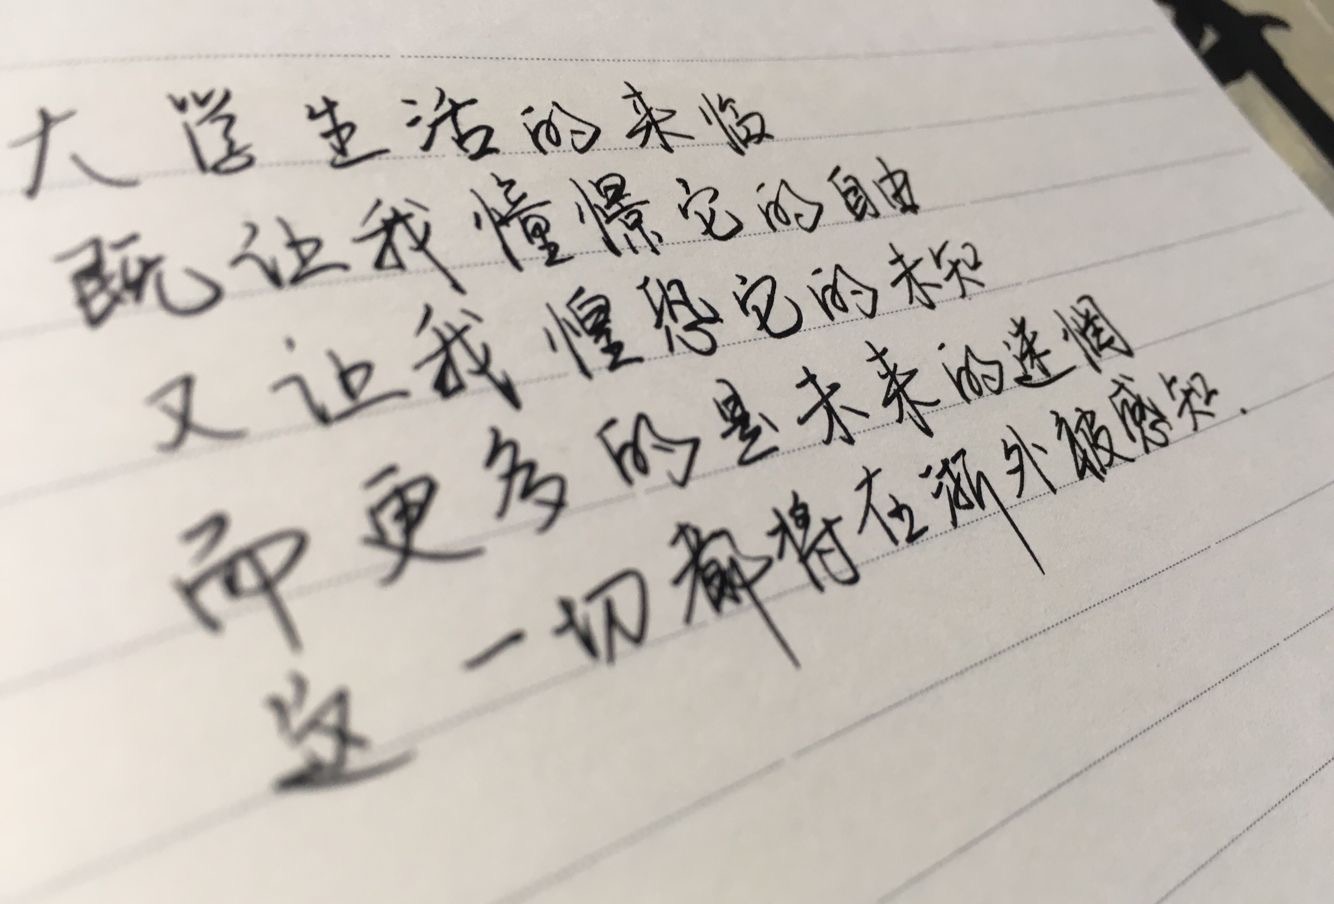 大学生活的来临
既让我憧憬它的自由
又让我惶恐它的未知
而更多的是未来的迷惘
这一切都将在浙外被感知.